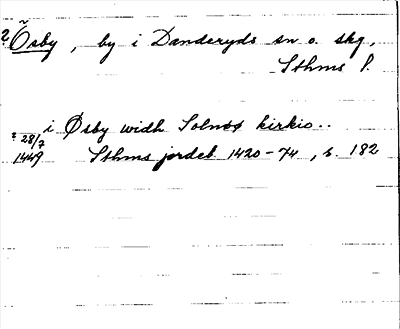 ? Ösby, by i Danderyds sn o. skg,
Sthms l.
i Øsby widh Solnøø kirkio..
? 28/7
1449 Sthms jordeb. 1420-74, s. 182